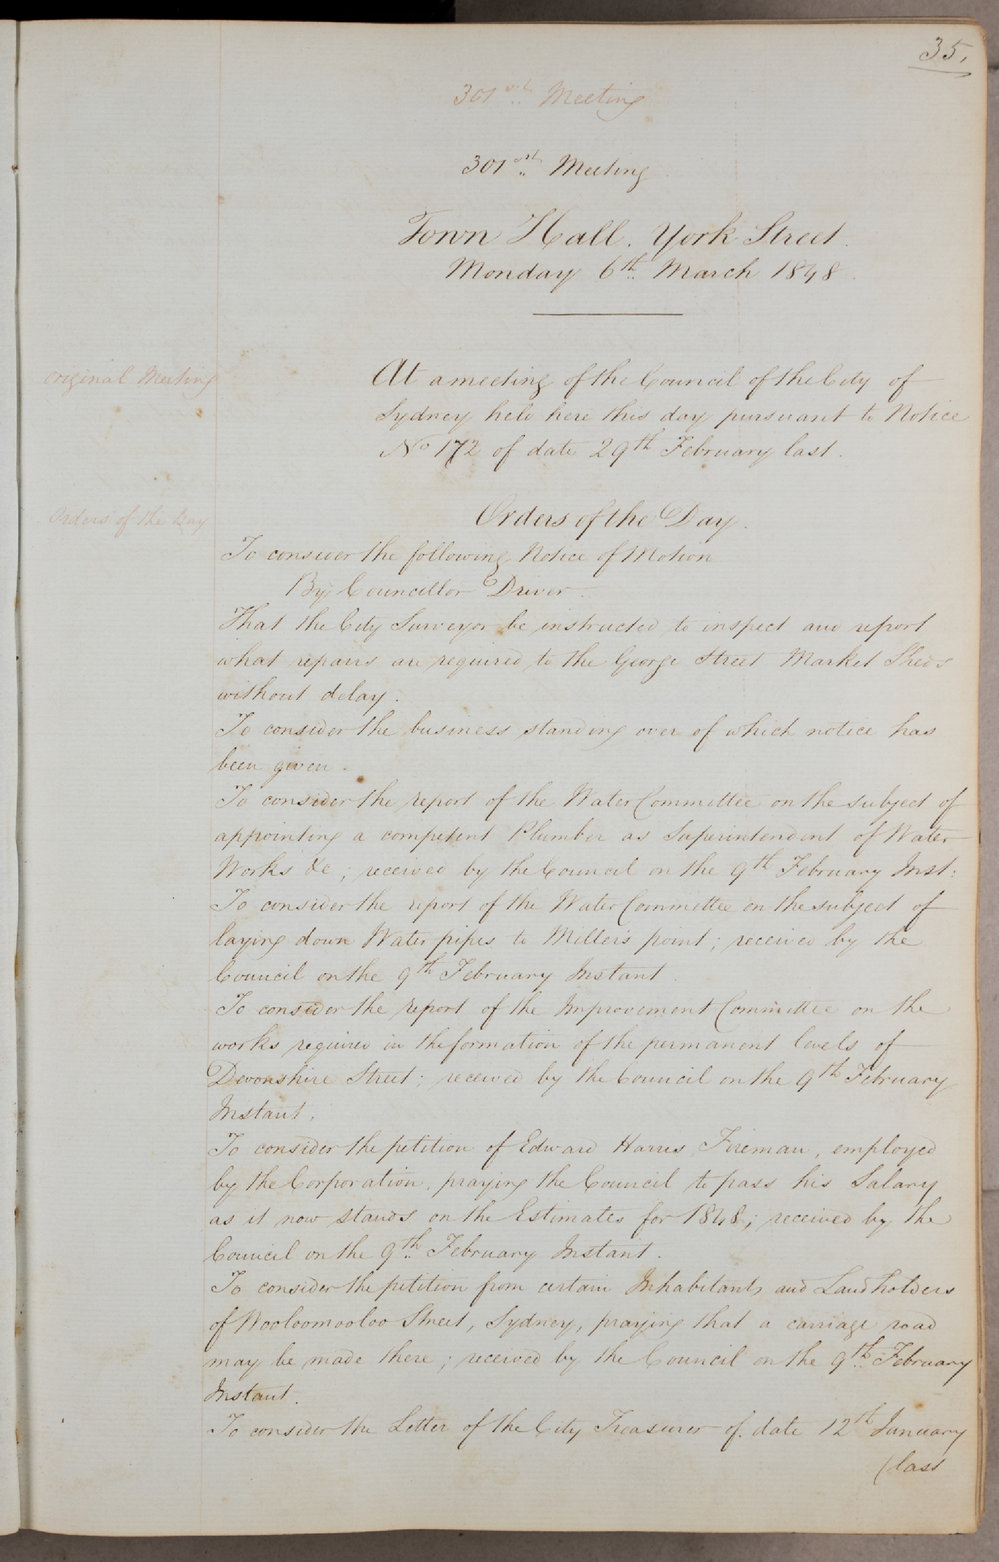 35.
301st Meeting
301st Meeting
Town Hall. York Street.
Monday 6th March 1848.
original Meeting
At a meeting of the Council of the City of
Sydney held here this day pursuant to Notice
No 172 of date 29th February last.
Orders of the Day
Orders of the Day.
To consider the following Notice of Motion
By Councillor Driver.
That the City Surveyor be instructed to inspect and report
what repairs are required to the George Street Market Sheds
without delay.
To consider the business standing over of which notice has
been given.
To consider the report of the Water Committee on the subject of
appointing a competent Plumber as Superintendent of Water
Works &c; received by the Council on the 9th February Inst:
To consider the report of the Water Committee on the subject of
laying down Water pipes to Miller's point; received by the
Council on the 9th February Instant
To consider the report of the Improvement Committee on the
works required in the formation of the permanent levels of
Devonshire Street; received by the Council on the 9th February
Instant.
To consider the petition of Edward Harris, Fireman, employed
by the Corporation, praying the Council to pass his Salary
as it now stands on the Estimates for 1848; received by the
Council on the 9th February Instant.
To consider the petition from certain Inhabitants and Landholders
of Wooloomooloo Street, Sydney, praying that a carriage road
may be made there; received by the Council on the 9th February
Instant.
To consider the Letter of the City Treasurer of date 12th January
(last